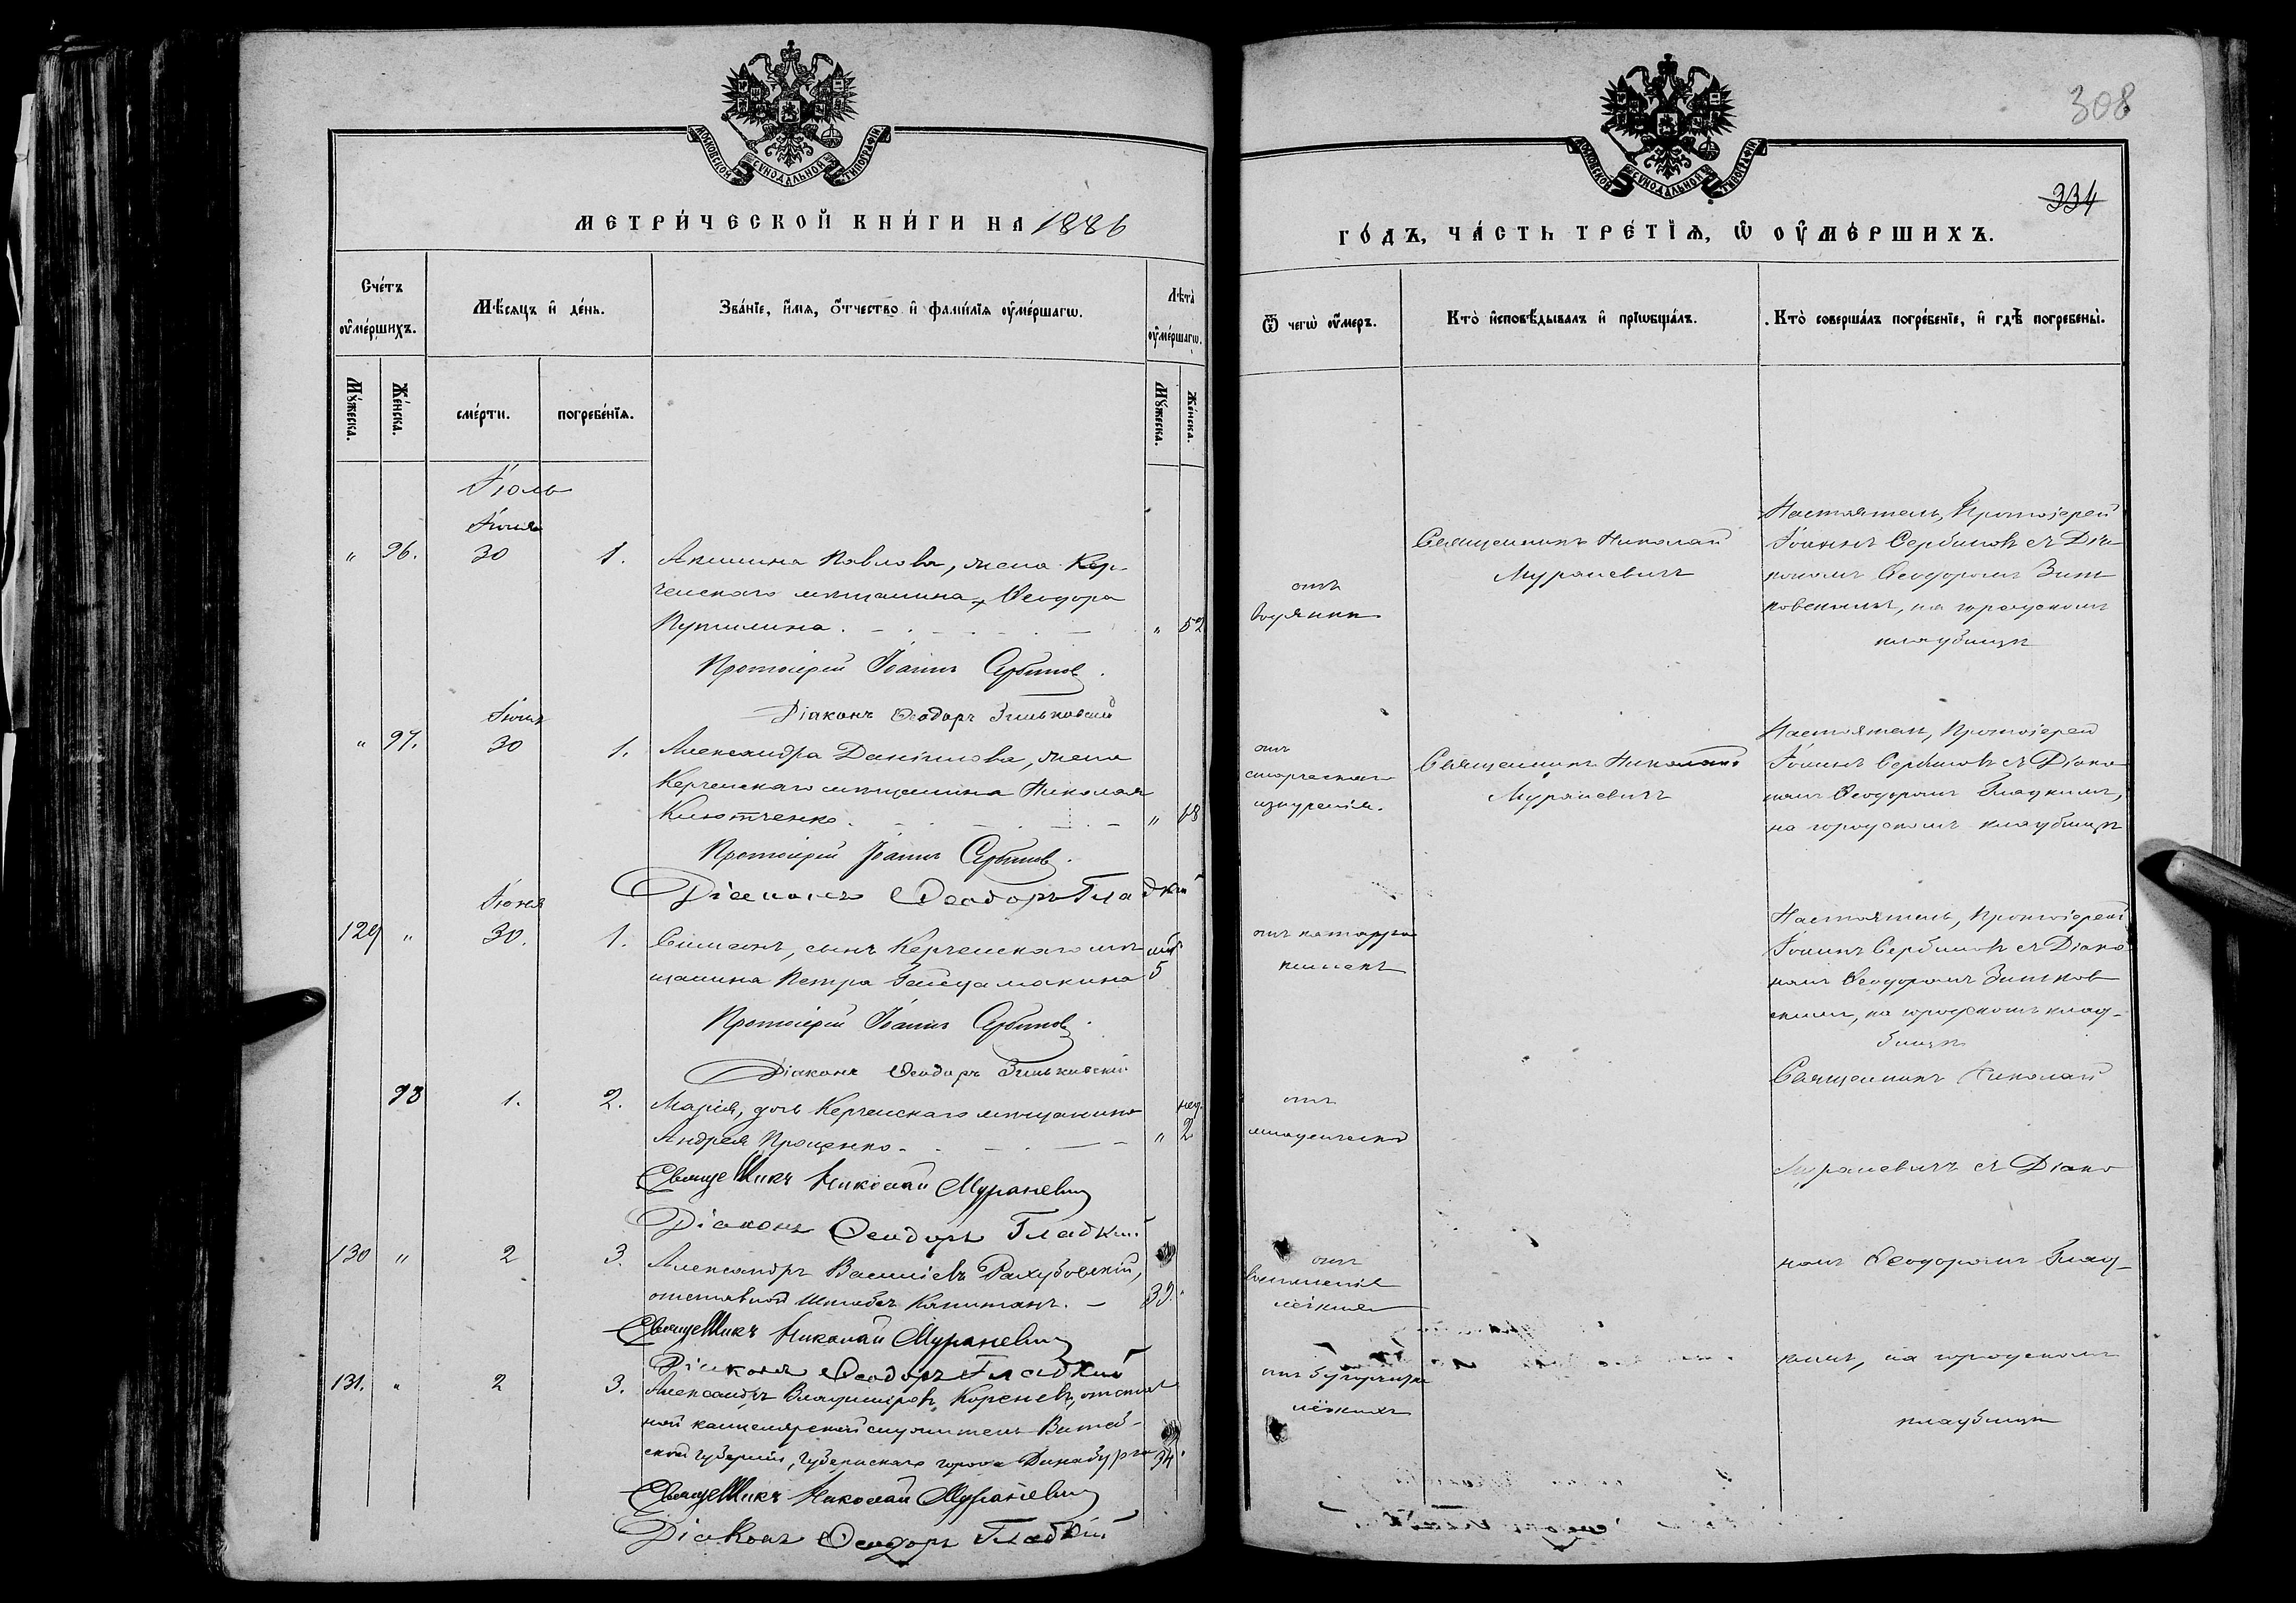 МОСКОВСКОЙ СѴНОДАЛЬНОЙ ТИПОГРАФІИ
МЕТРИ́ЧЕСКОЙ КНИ́ГИ НА 1886
Сче́тъ ᲂу҆ме́ршихъ.
Мѣ́сяцъ и҆ де́нь.
Зва́нїе, и҆́мя, ѻ҆́тчество и҆ фами́лїя ᲂу҆ме́ршагѡ.
Лѣта̀ ᲂу҆ме́ршагѡ.
Мꙋ́жеска.
Же́нска.
сме́рти.
погребе́нїя.
Мꙋ́жеска.
Же́нска.
Іюль
Іюня
" 96. 30 1. Акилина Павлова, жена Кер-
ченскаго мѣщанина Ѳеодора
Путилина. " 52
Протоіерей Іоаннъ Сербиновъ.
Діаконъ Ѳеодоръ Зиньковскій
Іюня
" 97. 30 1. Александра Даніилова, жена
Керченскаго мѣщанина Николая
" 68
Протоіерей Іоаннъ Сербиновъ.
Діаконъ Ѳеодоръ Гладкій
Іюня
129 " 30. 1. Симеонъ, сынъ Керченскаго мѣ-
щанина Петра 5
Протоіерей Іоаннъ Сербиновъ.
Діаконъ Ѳеодоръ Зиньковскій
98 1. 2. Марія, дочь Керченскаго мѣщанина нед.
Андрея Проценко. " 2
Священникъ Николай Мураневичъ
Діаконъ Ѳеодоръ Гладкій
130 " 2 3. Александръ Васильевъ
отставной Штабсъ Капитанъ. 39.
Священникъ Николай Мураневичъ
Діаконъ Ѳеодоръ Гладкій
131. " 2 3. Александръ Владиміровъ Кореневъ, отстав
ной канцелярскій служитель Витеб-
ской губерніи, губернскаго города Динабурга 34.
Священникъ Николай Мураневичъ
Діаконъ Ѳеодоръ Гладкій
308
МОСКОВСКОЙ СѴНОДАЛЬНОЙ ТИПОГРАФІИ
334
ГО́ДЪ, ЧА́СТЬ ТРЕ́ТЇѦ, Ѡ҆ ОУ҆МЕ́РШИХЪ.
Ѿ чегѡ̀ ᲂу҆́меръ.
Кто̀ и҆сповѣ́дывалъ и҆ прїѡбща́лъ.
Кто̀ соверша́лъ погребе́нїе, и҆ гдѣ̀ погребены̀.
отъ
водянки
Священникъ Николай
Мураневичъ
Настоятель, Протоіерей
Іоаннъ Сербиновъ съ Діа-
кономъ Ѳеодоромъ Зинь
ковскимъ, на городскомъ
кладбищѣ
отъ
старческаго
изнуренія.
Священникъ Николай
Мураневичъ
Настоятель, Протоіерей
Іоаннъ Сербиновъ съ Діако
номъ Ѳеодоромъ Гладкимъ,
на городскомъ кладбищѣ
отъ катарра
кишекъ
Настоятель, Протоіерей
Іоаннъ Сербиновъ съ Діако
номъ Ѳеодоромъ Зиньков
скимъ, на городскомъ клад-
бищѣ
отъ
младенческой
Священникъ Николай
Мураневичъ съ Діако
отъ
воспаленія
легкихъ
номъ Ѳеодоромъ Глад-
отъ бугорчатки
лёгкихъ
кимъ, на городскомъ
кладбищѣ